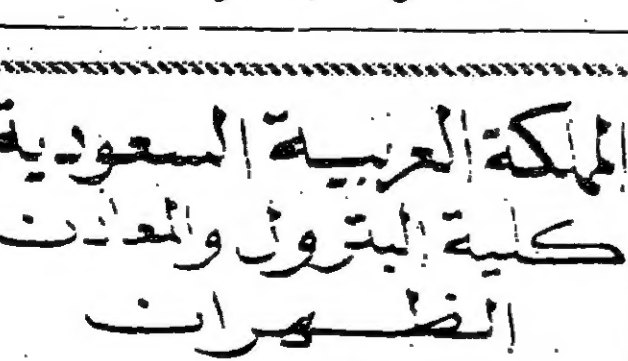 المملكة العربية السعودية
كلية البترول والمعادن
الظهران